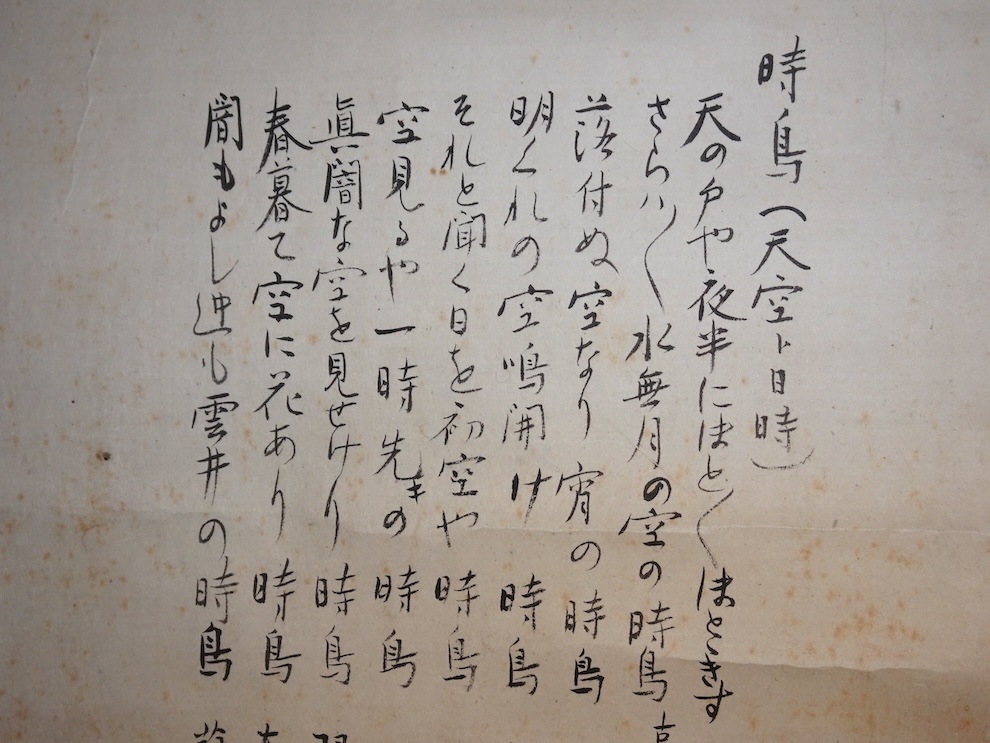 時鳥（天空ト日時）
天の戸や夜半にほと〱ほとゝきす
さらハ〱水無月の空の時鳥
落付ぬ空なり宵の時鳥
明くれの空鳴開け時鳥
それと聞く日を初空や時鳥
空見るや一時先キの時鳥
眞闇な空を見せけり時鳥
春暮て空に花あり時鳥
闇もよし
も雲井の時鳥